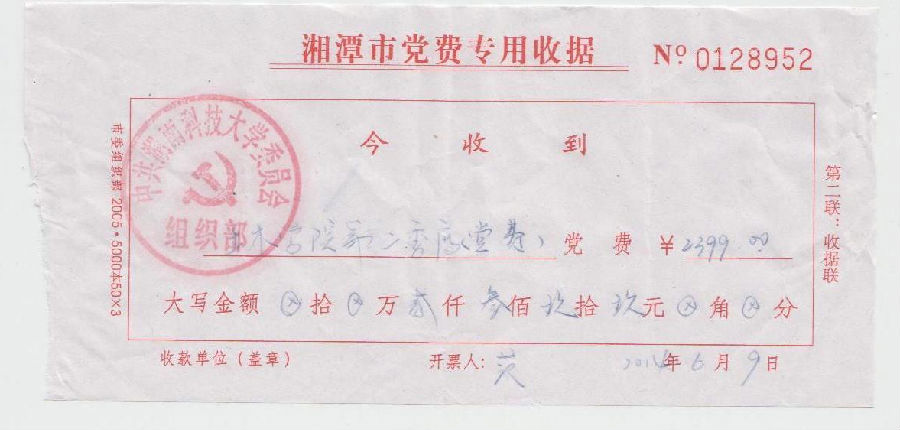 湘潭市党费专用收据
Nº 0128952
中共湖南科技大学委员会
组织部
今收到
土木学院第二季度(党费) 党费 ¥2399.00
大写金额 ⊗拾⊗万贰仟叁佰玖拾玖元⊗角⊗分
收款单位(盖章) 开票人: 年6月9日
市委组织部 2005·5000本50×3
第二联:收据联